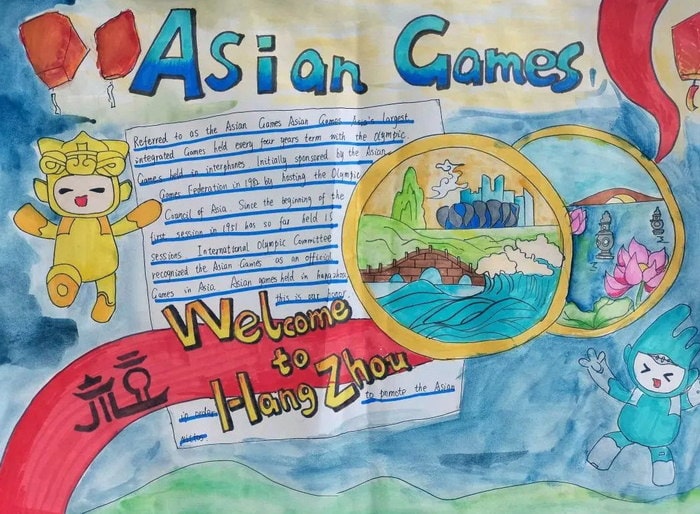 Asian Games,
Referred to as the Asian Games Asian Games Asia's largest
integrated Games held every four years term with the olympic
Games held in interphones Initially sponsored by the Asian
Games Federation in 1982 by hosting the Olympic
Council of Asia. Since the beginning of the
first session in 1951 has so far held 15
sessions International Olympic Committee
recognized the Asian Games as an official
Games in Asia. Asian games held in
this is our
Welcome
to
Hang Zhou
to promote the Asian
in order